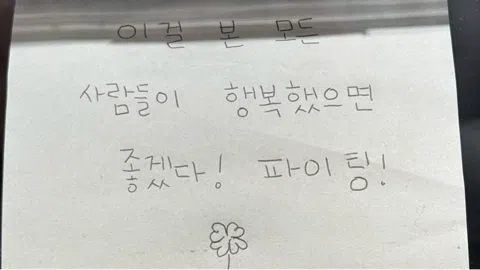 이걸 본 모든
사람들이 행복했으면
좋겠다! 파이팅!